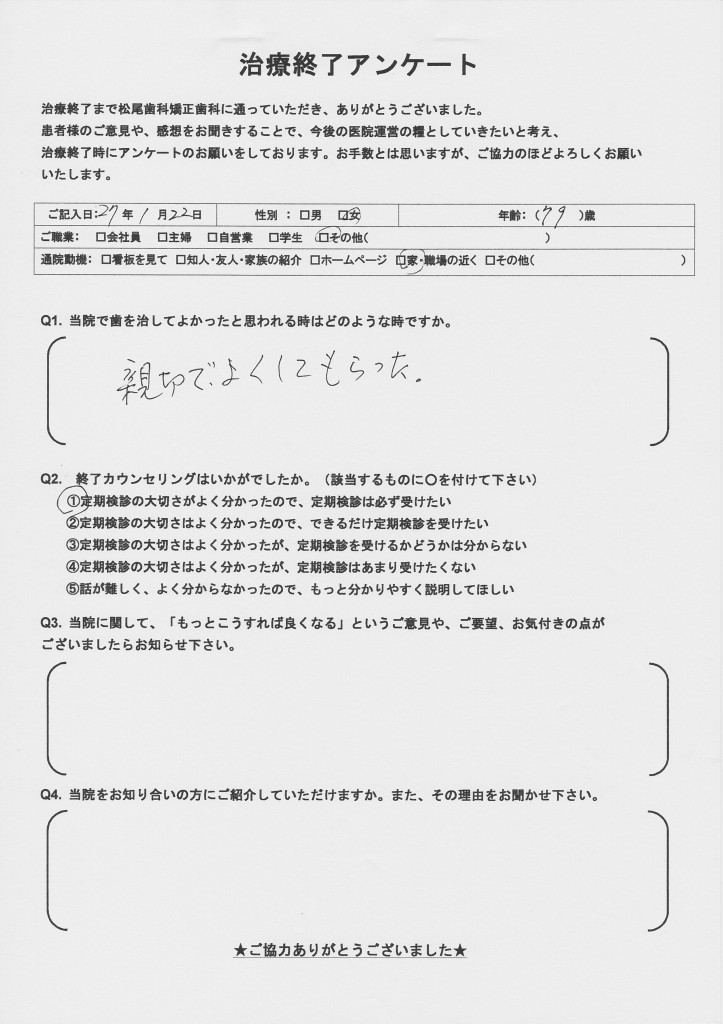 治療終了アンケート
治療終了まで松尾歯科矯正歯科に通っていただき、ありがとうございました。
患者様のご意見や、感想をお聞きすることで、今後の医院運営の糧としていきたいと考え、
治療終了時にアンケートのお願いをしております。お手数とは思いますが、ご協力のほどよろしくお願い
いたします。
ご記入日:27年 1月22日 性別 : □男 □女 年齢:(79)歳
ご職業: □会社員 □主婦 □自営業 □学生 □その他( )
通院動機: □看板を見て □知人・友人・家族の紹介 □ホームページ □家・職場の近く □その他( )
Q1. 当院で歯を治してよかったと思われる時はどのような時ですか。
親切で、よくしてもらった。
Q2. 終了カウンセリングはいかがでしたか。(該当するものに〇を付けて下さい)
①定期検診の大切さがよく分かったので、定期検診は必ず受けたい
②定期検診の大切さはよく分かったので、できるだけ定期検診を受けたい
③定期検診の大切さはよく分かったが、定期検診を受けるかどうかは分からない
④定期検診の大切さはよく分かったが、定期検診はあまり受けたくない
⑤話が難しく、よく分からなかったので、もっと分かりやすく説明してほしい
Q3. 当院に関して、「もっとこうすれば良くなる」というご意見や、ご要望、お気付きの点が
ございましたらお知らせ下さい。
Q4. 当院をお知り合いの方にご紹介していただけますか。また、その理由をお聞かせ下さい。
★ご協力ありがとうございました★